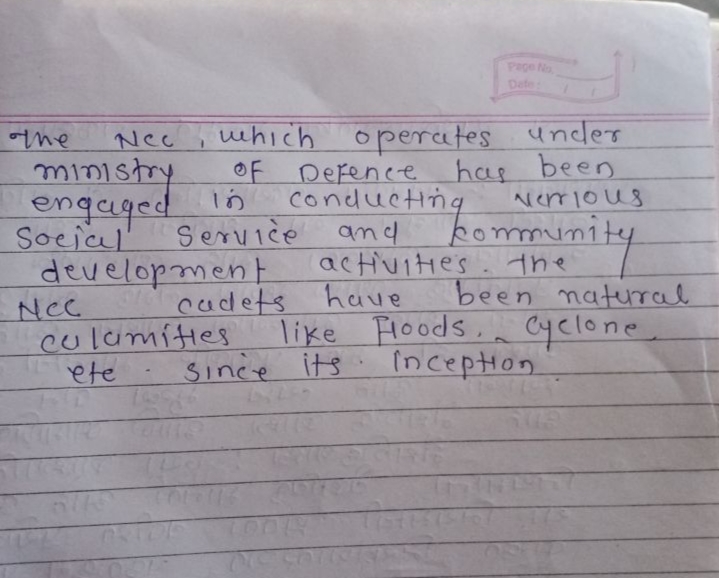 Page No.
Date: / /
the NCC, which operates under
ministry OF Defence has been
engaged in conducting verrious
social service and kommunity
development activities. the
NCC cadets have been natural
calamities like Floods, cyclone.
ete. since its inception.